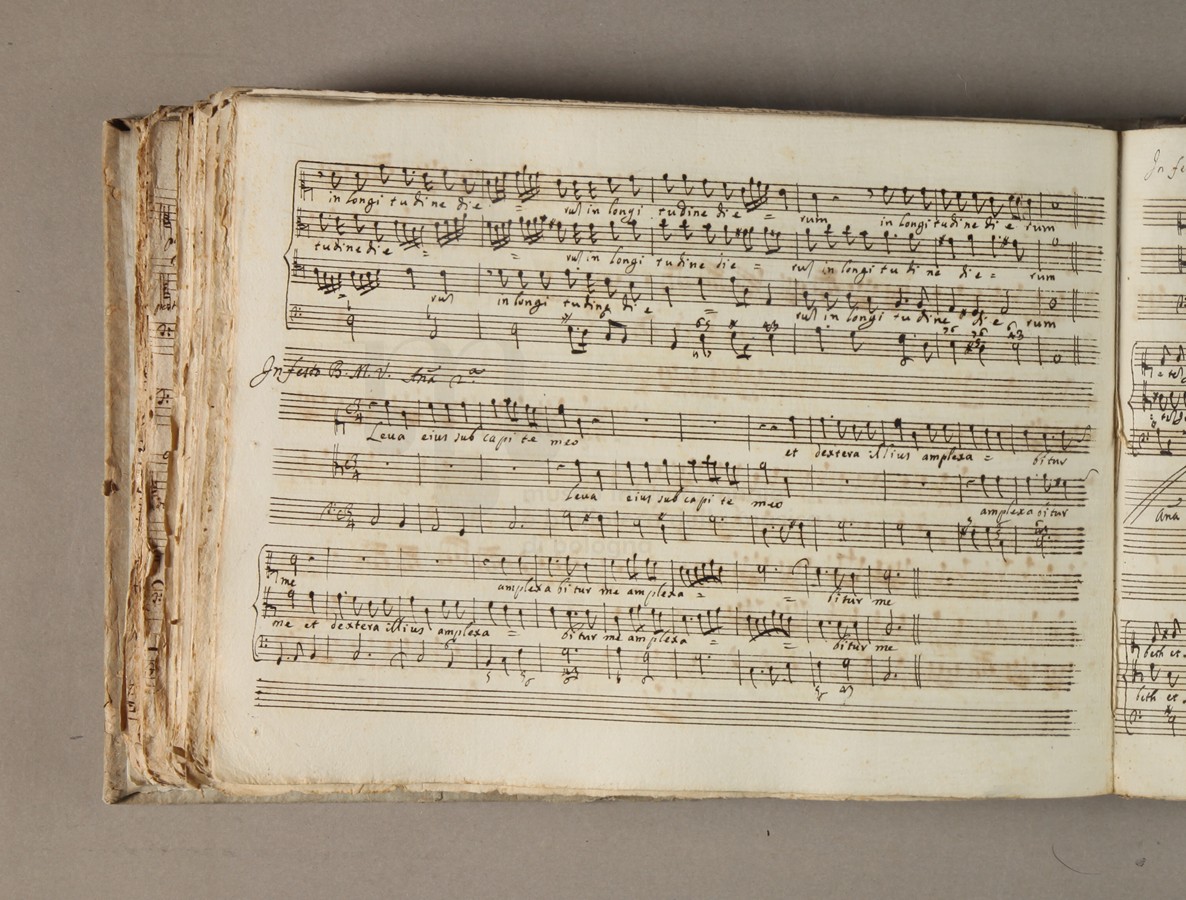 in longi tudine die = rum in longi tudine die = rum in longi tudine di e rum
tudine die = = rum in longi tudine die = rum in longi tu di ne die = rum
= rum in longi tudine di e = rum in longi tu dine di e rum
In festo B. M. V. Ana 2a
Leua eius sub capi te meo et dextera illius amplexa = bitur
Leua eius sub capi te meo amplexa bitur
me amplexa bi tur me amplexa = = bitur me
me et dextera illius amplexa = bi tur me amplexa = = bitur me
Ana
beth et